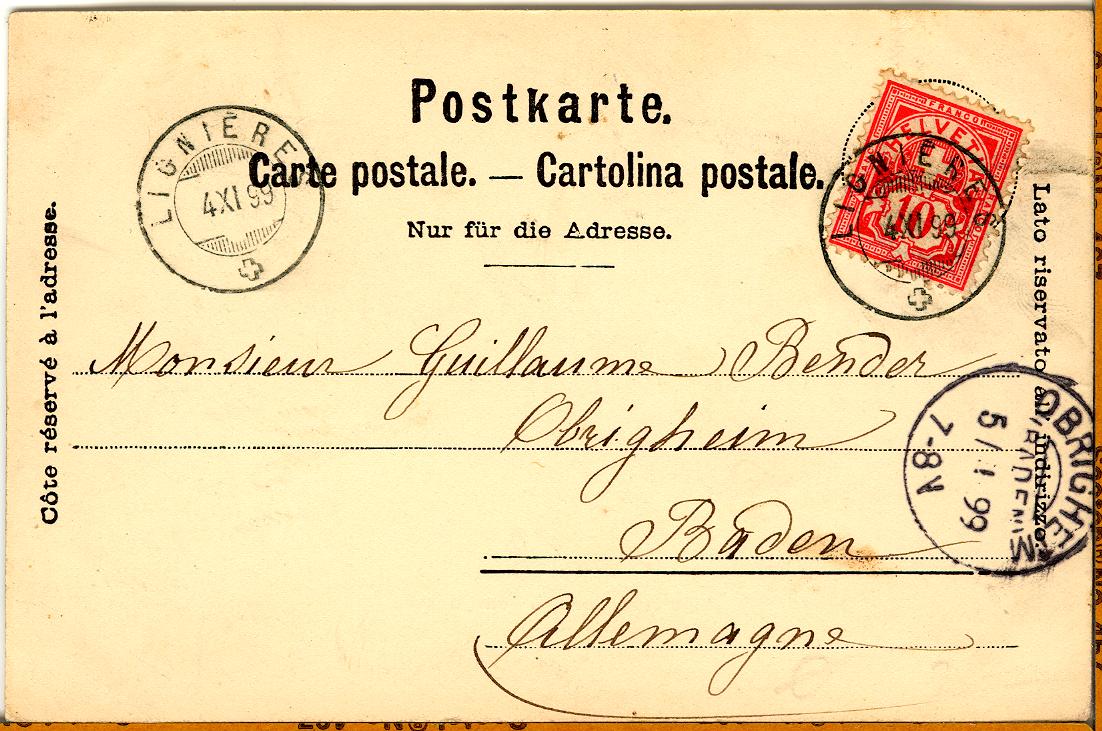 Postkarte.
Carte postale. — Cartolina postale.
Nur für die Adresse.
LIGNIÈRES
4 XI 99
FRANCO
HELVETIA
10
LIGNIÈRES
4 XI 99
Côte réservé à l'adresse.
Lato riservato all'indirizzo.
Monsieur Guillaume Bender
Obrigheim
Baden
Allemagne
OBRIGHEIM
(BADEN)
99
7-8V